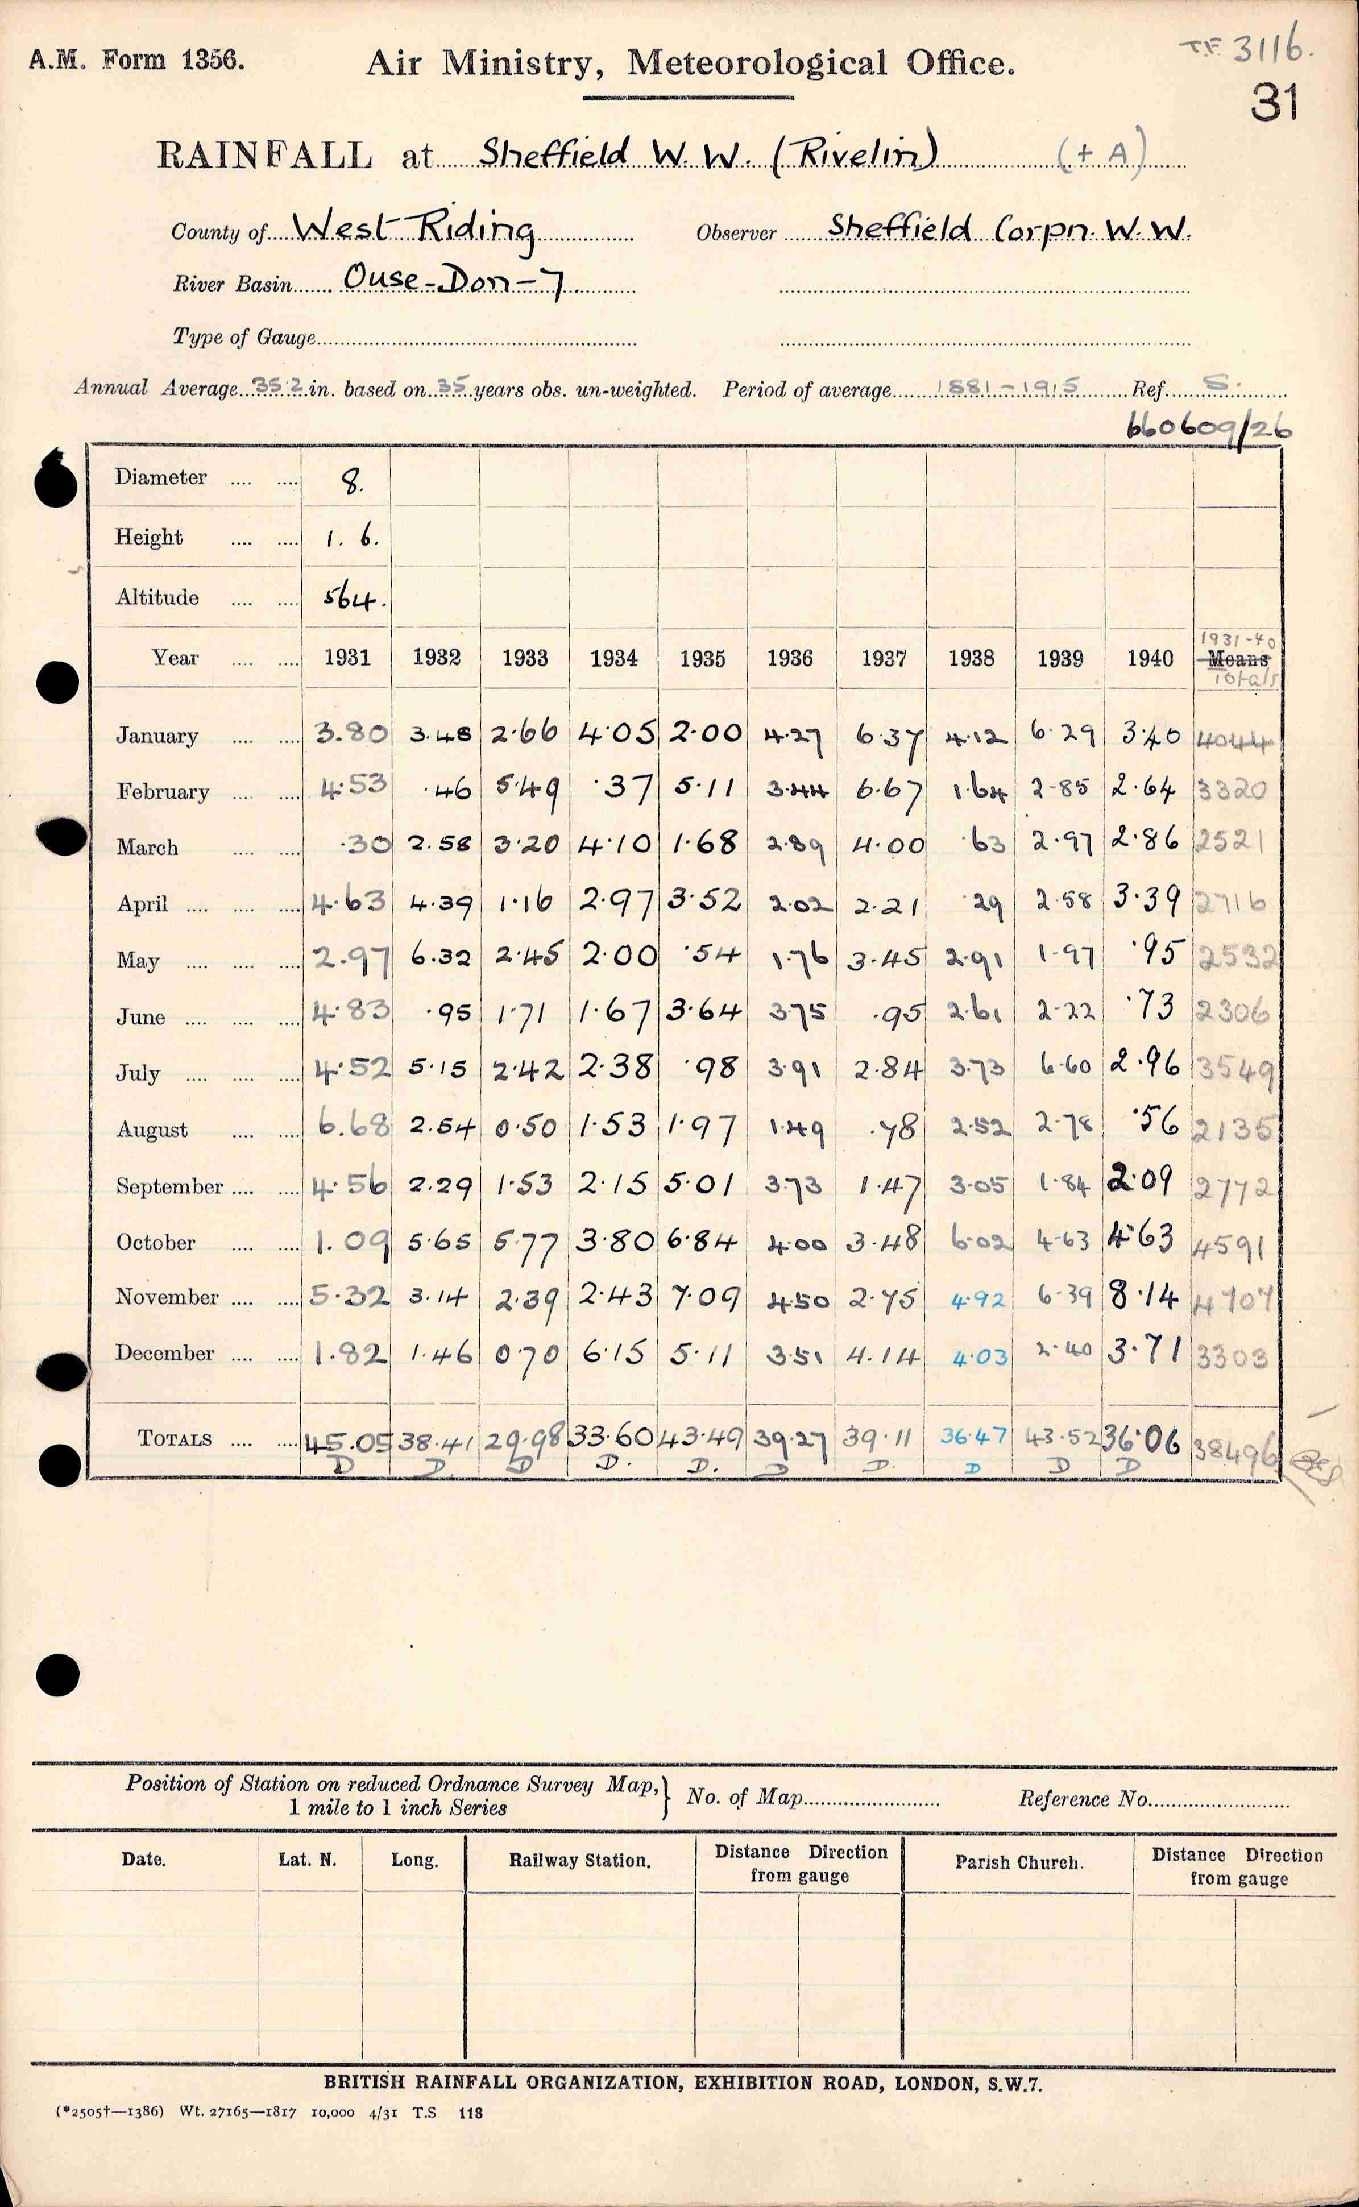 A.M. Form 1356.
Air Ministry, Meteorological Office.
3116.
31
RAINFALL at Sheffield W. W. (Rivelin) (+ A)
County of West Riding Observer Sheffield Corpn. W. W.
River Basin Ouse-Don-7
Type of Gauge
Annual Average 35·2 in. based on 35 years obs. un-weighted. Period of average 1881-1915 Ref. S.
660609/26
Diameter 8.
Height 1. 6.
Altitude 564.
Year 1931 1932 1933 1934 1935 1936 1937 1938 1939 1940 1931-40 Means Totals
January 3.80 3.48 2.66 4.05 2.00 4.27 6.37 4.12 6.29 3.40 4044
February 4.53 .46 5.49 .37 5.11 3.44 6.67 1.64 2.85 2.64 3320
March .30 2.58 3.20 4.10 1.68 2.89 4.00 .63 2.97 2.86 2521
April 4.63 4.39 1.16 2.97 3.52 2.02 2.21 .29 2.58 3.39 2716
May 2.97 6.32 2.45 2.00 .54 1.76 3.45 2.91 1.97 .95 2532
June 4.83 .95 1.71 1.67 3.64 3.75 .95 2.61 2.22 .73 2306
July 4.52 5.15 2.42 2.38 .98 3.91 2.84 3.73 6.60 2.96 3549
August 6.68 2.54 0.50 1.53 1.97 1.49 .78 2.52 2.78 .56 2135
September 4.56 2.29 1.53 2.15 5.01 3.73 1.47 3.05 1.84 2.09 2772
October 1.09 5.65 5.77 3.80 6.84 4.00 3.48 6.02 4.63 4.63 4591
November 5.32 3.14 2.39 2.43 7.09 4.50 2.75 4.92 6.39 8.14 4707
December 1.82 1.46 0.70 6.15 5.11 3.51 4.14 4.03 2.40 3.71 3303
TOTALS 45.05 38.41 29.98 33.60 43.49 39.27 39.11 36.47 43.52 36.06 38496
D D. D D. D. D D. D D D
Position of Station on reduced Ordnance Survey Map, } No. of Map Reference No.
1 mile to 1 inch Series
Date. Lat. N. Long. Railway Station. Distance Direction from gauge Parish Church. Distance Direction from gauge
BRITISH RAINFALL ORGANIZATION, EXHIBITION ROAD, LONDON, S.W.7.
(*2505†—1386) Wt. 27165—1817 10,000 4/31 T.S 118